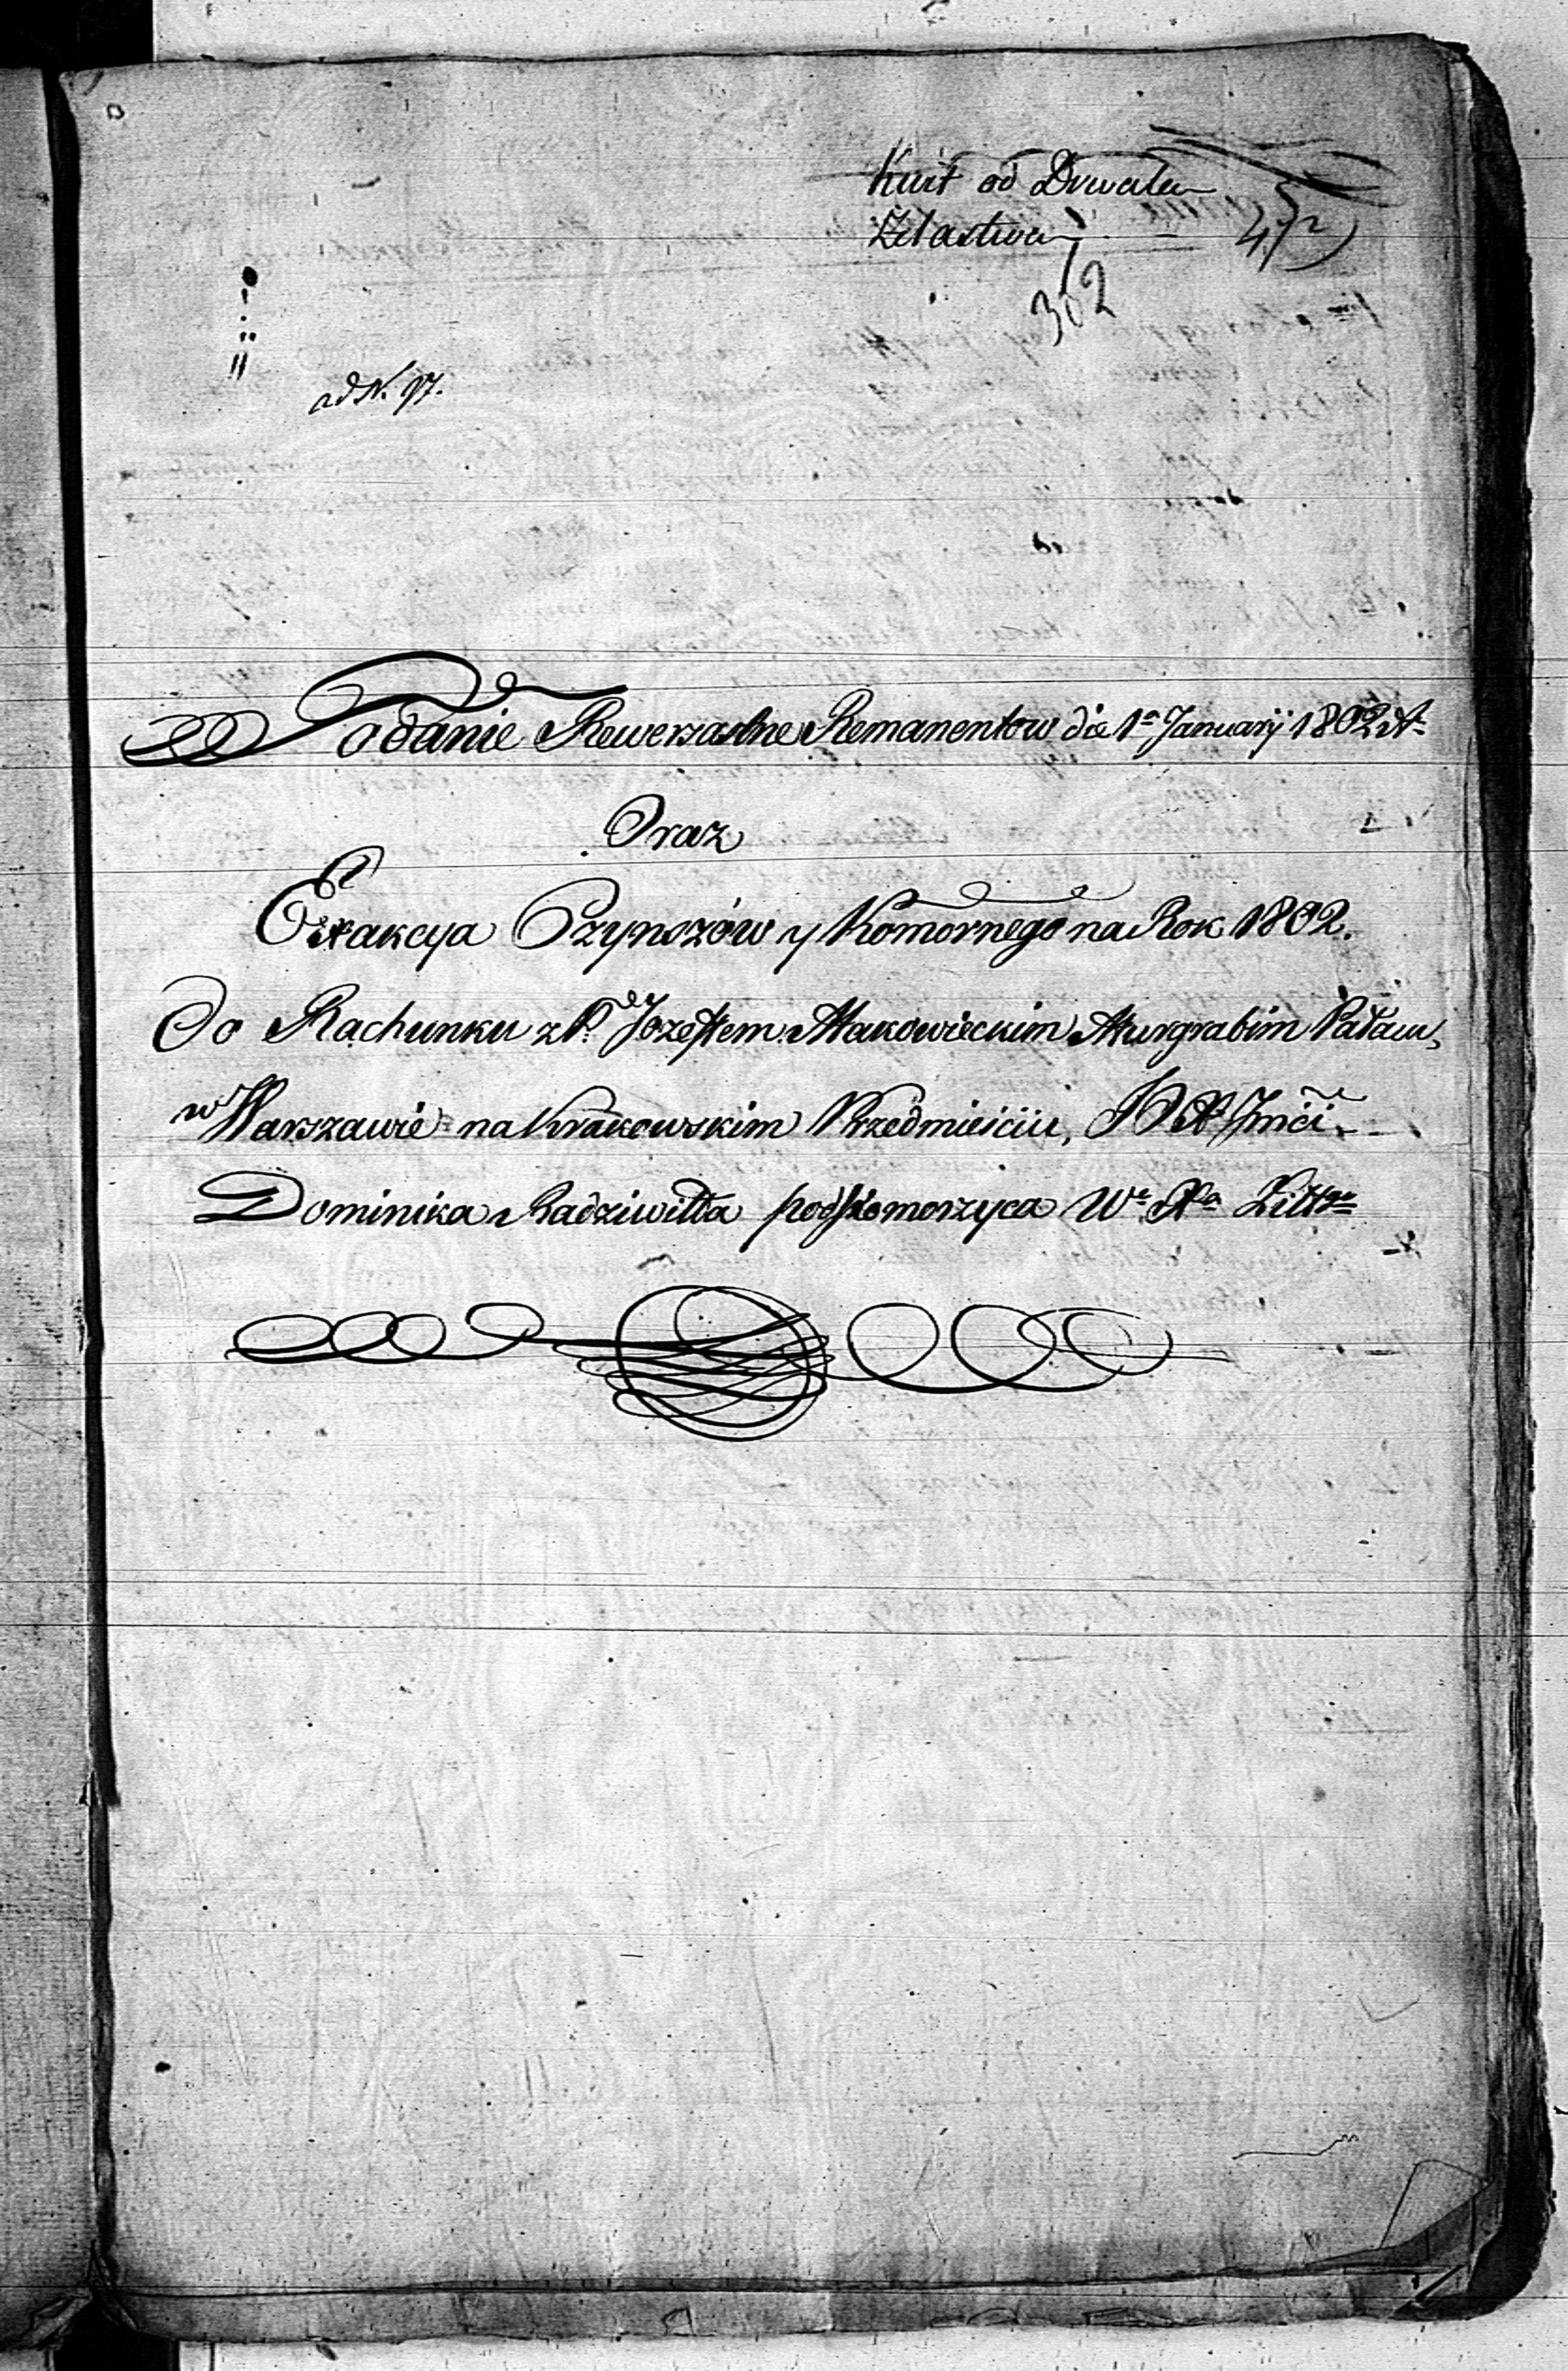 Kwit od Drwala
Żelastwa
472
362
ad N. 97.
Podanie Rewersalne Remanentow die 1ª Januarij 1802 A
Oraz
Exakcya Czynszów y Komornego na Rok 1802.
Do Rachunku z P. Jozefem Makowieckim Murgrabim Pałacu,
w Warszawie na Krakowskim Przedmieściu, J O X Jmći
Dominika Radziwiłła podkomorzyca Wº Xª Littgº